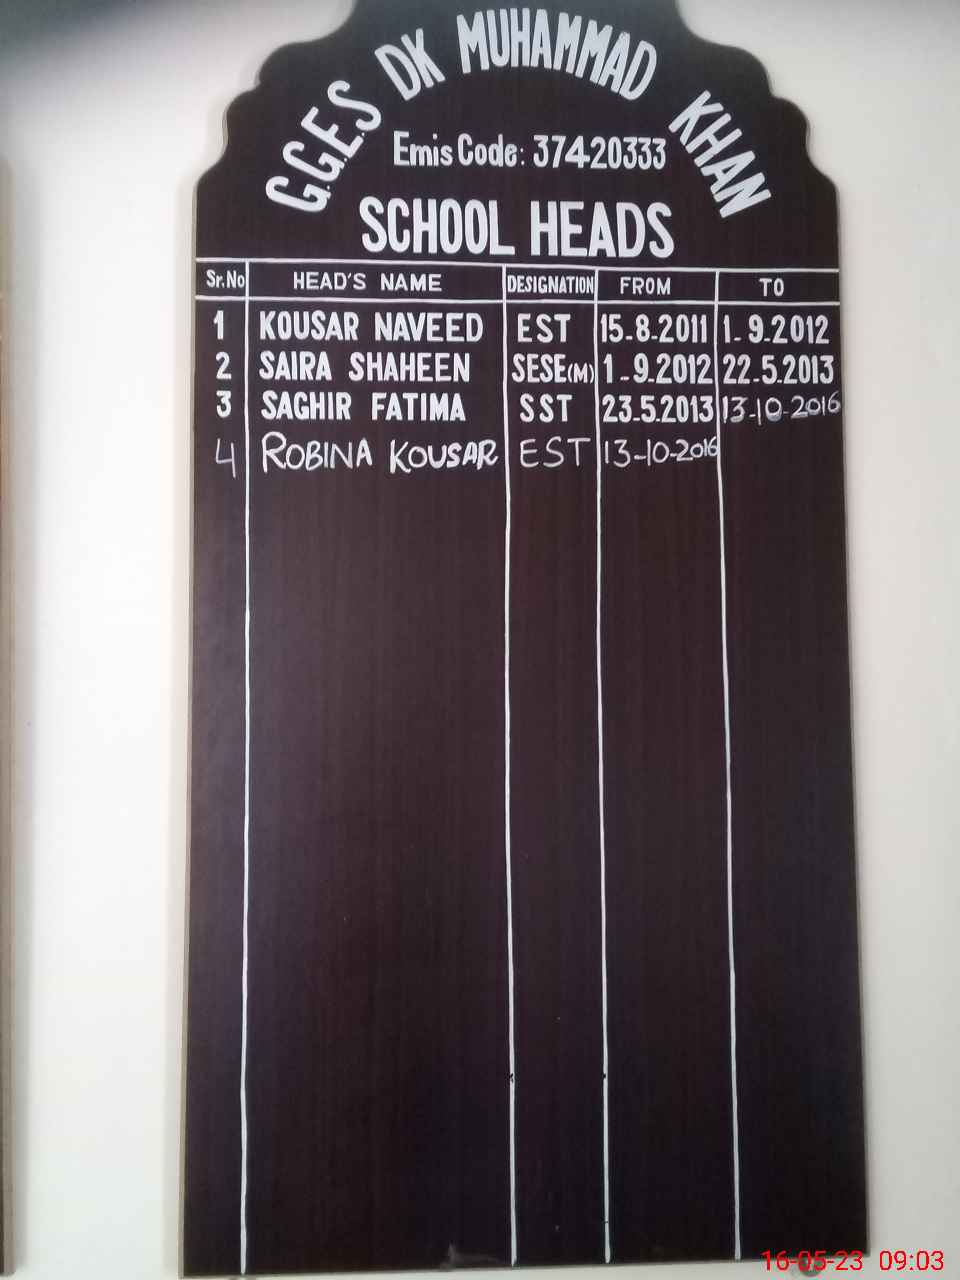 G.G.E.S DK MUHAMMAD KHAN
Emis Code: 37420333
SCHOOL HEADS
Sr.No HEAD'S NAME DESIGNATION FROM TO
1 KOUSAR NAVEED EST 15.8.2011 1.9.2012
2 SAIRA SHAHEEN SESE(M) 1.9.2012 22.5.2013
3 SAGHIR FATIMA SST 23.5.2013 13-10-2016
4 ROBINA KOUSAR EST 13-10-2016
16-05-23 09:03